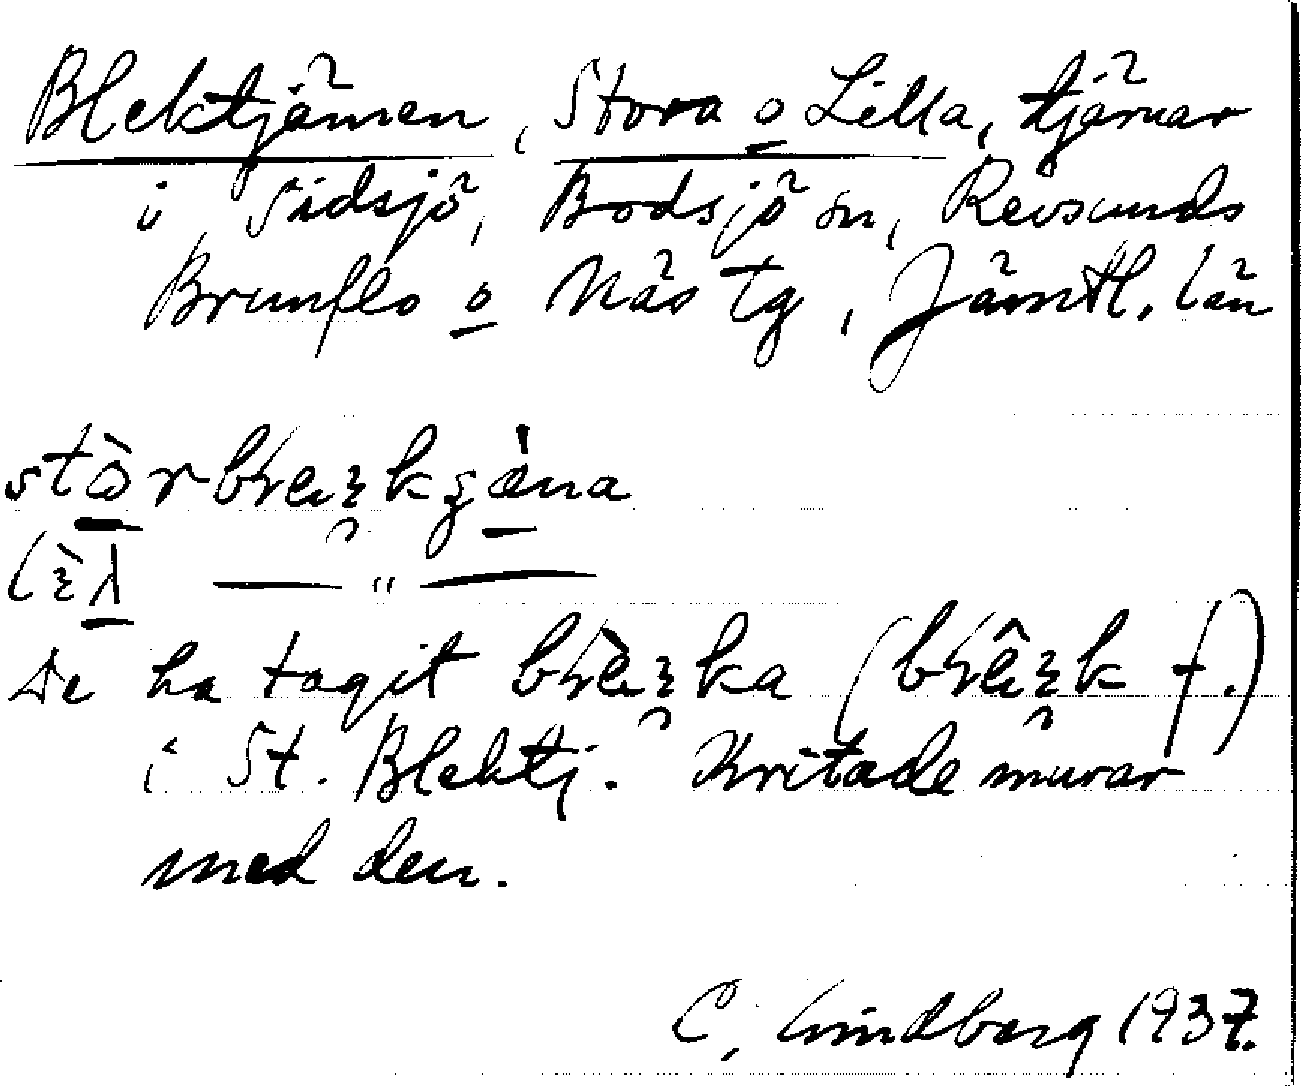 Blektjärnen, Stora o Lilla, tjärnar
i Sidsjö, Bodsjö sn, Revsunds
Brunflo o Näs tg, Jämtl. län
De ha tagit
i St. Blektj. Kritade murar
med den.
C. Lindberg 1937.